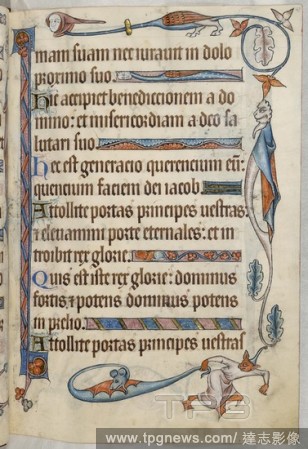 mam suam nec iurauit in dolo
proximo suo.
Hic accipiet benediccionem a do
mino: et misericordiam a deo sa
lutari suo
hec est generacio querencium eū:
querencium faciem dei iacob.
Attollite portas principes uestras:
⁊ eleuamini porte eternales: et in
troibit rex glorie.
Quis est iste rex glorie: dominus
fortis ⁊ potens dominus potens
in prelio.
Attollite portas principes uestras
TPG
www.tpgnews.com/ 達志影像